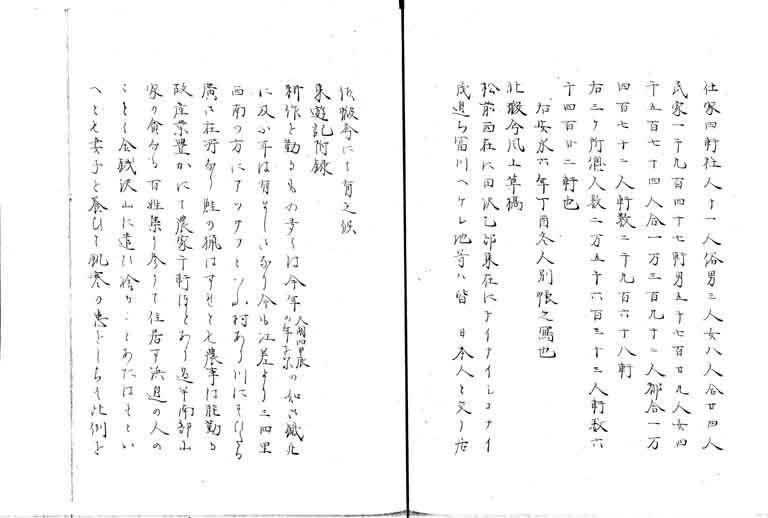 社家四軒住人十一人俗男三人女八人合廿四人
民家一千九百四十七軒男五千七百廿九人女四
千五百七十四人合一万三百九十二人都合一万
四百七十二人軒数二千九百六十八軒
右三ケ所惣人数二万五千六百三十三人軒数六
千四百廿二軒也
右安永六年丁酉冬人別帳之写也
北蝦今風土草稿
松前西在に田沢乙部東在にナイナイシコナイ
茂辺ち富川ヘケレ地等ハ皆 日本人と交り居
依蝦夷にて有之候
東遊記附録
耕作を勤るもの多くは今年 の如き鐡九
に及ふ事は有ましき 今も江差より三四里
西南の方にアツサフといふ村あり川に
廣き在所 鮭の猟はすせとも農事は能勤る
故産業豊かにて農家千軒ほとあり 南部
家の 百姓集り参りて住居す浜辺の人の
ことく金銭沢山に遣ひ捨ることあたはすとい
へとも妻子を養ひて飢寒の患をしらす此例を